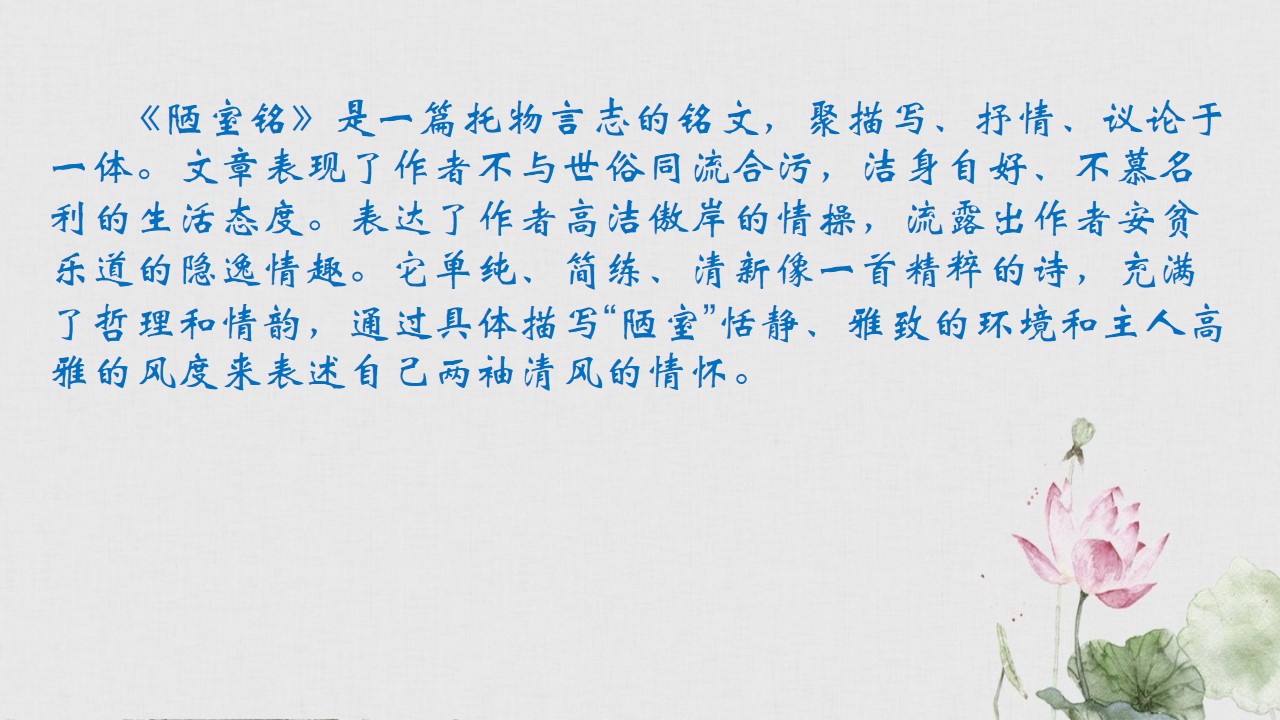 《陋室铭》是一篇托物言志的铭文，聚描写、抒情、议论于
一体。文章表现了作者不与世俗同流合污，洁身自好、不慕名
利的生活态度。表达了作者高洁傲岸的情操，流露出作者安贫
乐道的隐逸情趣。它单纯、简练、清新像一首精粹的诗，充满
了哲理和情韵，通过具体描写“陋室”恬静、雅致的环境和主人高
雅的风度来表述自己两袖清风的情怀。